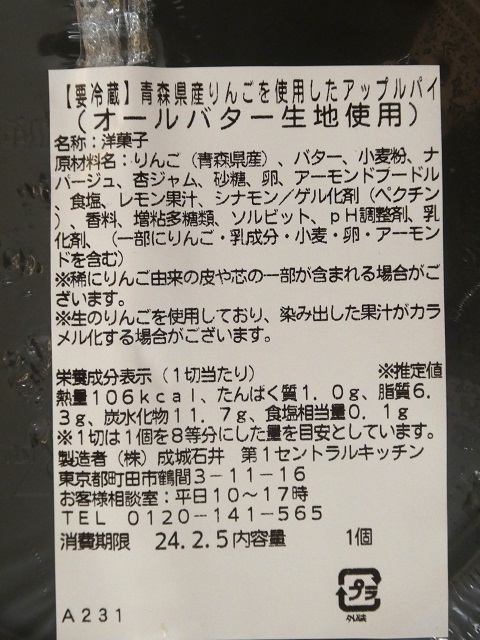 【要冷蔵】青森県産りんごを使用したアップルパイ
(オールバター生地使用)
名称:洋菓子
原材料名:りんご(青森県産)、バター、小麦粉、ナ
パージュ、杏ジャム、砂糖、卵、アーモンドプードル
、食塩、レモン果汁、シナモン/ゲル化剤(ペクチン
)、香料、増粘多糖類、ソルビット、pH調整剤、乳
化剤、(一部にりんご・乳成分・小麦・卵・アーモン
ドを含む)
※稀にりんご由来の皮や芯の一部が含まれる場合がご
ざいます。
※生のりんごを使用しており、染み出した果汁がカラ
メル化する場合がございます。
栄養成分表示(1切当たり) ※推定値
熱量106kcal、たんぱく質1.0g、脂質6.
3g、炭水化物11.7g、食塩相当量0.1g
※1切は1個を8等分にした量を目安としています。
製造者(株)成城石井 第1セントラルキッチン
東京都町田市鶴間3-11-16
お客様相談室:平日10~17時
TEL 0120-141-565
消費期限 24.2.5内容量 1個
プラ
A231